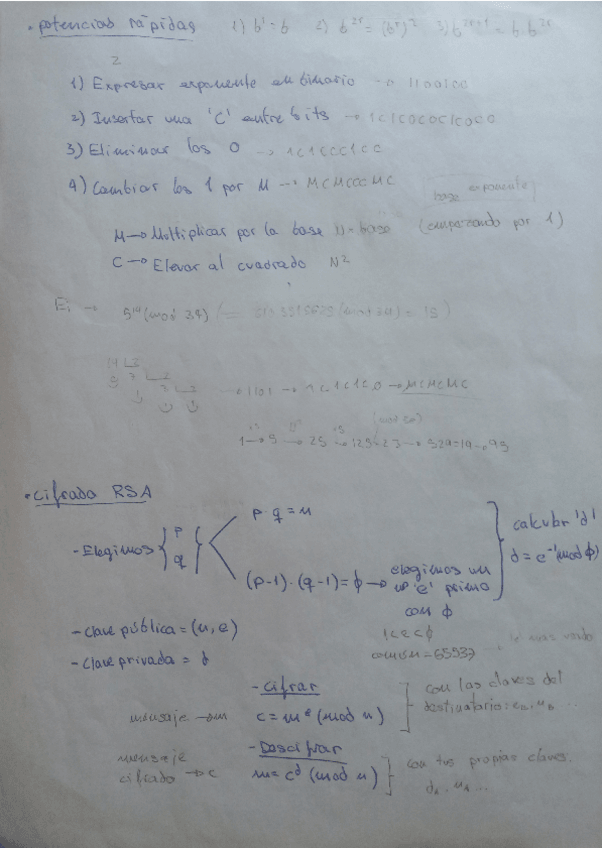 • potencias rápidas 1) b¹ = b 2) b²ʳ = (bʳ)² 3) b²ʳ⁺¹ = b·b²ʳ
2
1) Expresar exponente en binario → 1100100
2) Insertar una 'C' entre bits → 1C1C0C0C1C0C0
3) Eliminar los 0 → 1C1CCC1CC
4) Cambiar los 1 por M → MCMCCCMC
base exponente
M → Multiplicar por la base N·base (empezando por 1)
C → Elevar al cuadrado N²
Ej →
MCMCMC
(mod
• Cifrado RSA
- Elegimos { p q }
p·q = n
(p-1)·(q-1) = ϕ → elegimos un
nº 'e' primo
con ϕ
calcular 'd'
d = e⁻¹ (mod ϕ)
- Clave pública = (n, e)
1<e<ϕ
- Clave privada = d
común = 65537
- Cifrar
mensaje → m c = mᵉ (mod n)
con las claves del
destinatario: e_B, n_B ...
- Descifrar
mensaje
cifrado → c m = cᵈ (mod n)
con tus propias claves.
d_A, n_A ...